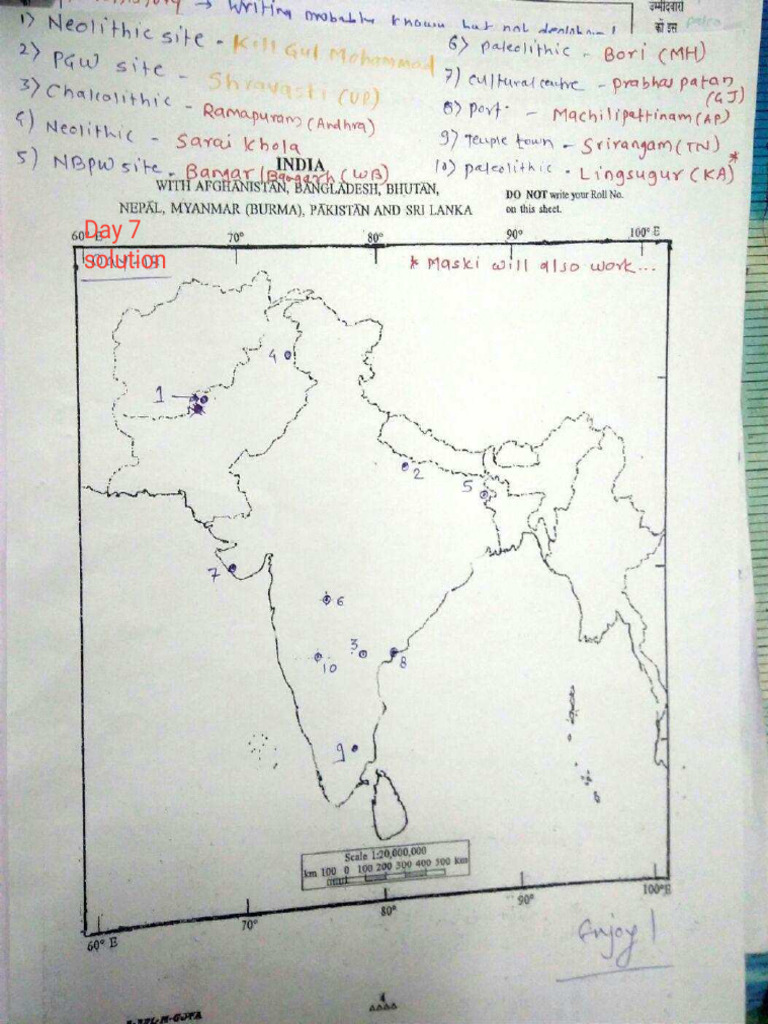 → Writing probably known but not
उम्मीदवारों
को इस
1) Neolithic site - Kili Gul Mohammad
2) PGW site - Shravasti (UP)
3) Chalcolithic - Ramapuram (Andhra)
4) Neolithic - Sarai Khola
5) NBPW site - Bangar (Bangarh (WB)
6) paleolithic - Bori (MH)
7) cultural centre - prabhas patan (GJ)
8) port - Machilipattinam (AP)
9) Temple town - Srirangam (TN)
10) paleolithic - Lingsugur (KA) *
INDIA
WITH AFGHANISTAN, BANGLADESH, BHUTAN,
NEPĀL, MYANMAR (BURMA), PĀKISTĀN AND SRI LANKA
DO NOT write your Roll No.
on this sheet.
Day 7
solution
60° E
70°
80°
90°
100° E
* Maski will also work...
4
1
2
5
7
6
3
10
8
9
Scale 1:20,000,000
km 100 0 100 200 300 400 500 km
60° E
70°
80°
90°
100° E
Enjoy!
4